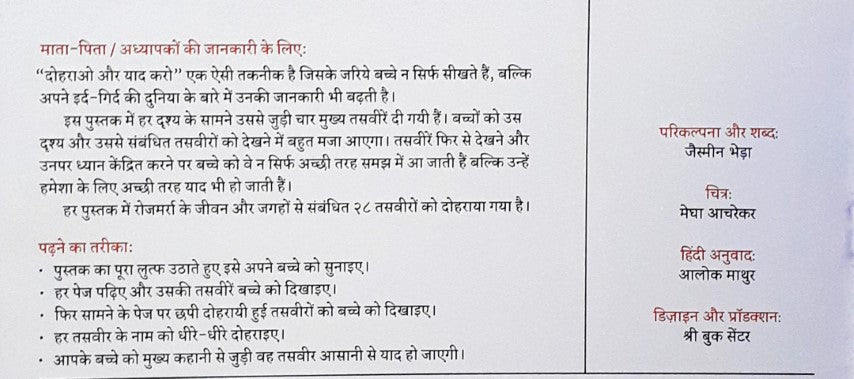 माता-पिता / अध्यापकों की जानकारी के लिए:
“दोहराओ और याद करो” एक ऐसी तकनीक है जिसके जरिये बच्चे न सिर्फ सीखते हैं, बल्कि
अपने इर्द-गिर्द की दुनिया के बारे में उनकी जानकारी भी बढ़ती है।
इस पुस्तक में हर दृश्य के सामने उससे जुड़ी चार मुख्य तसवीरें दी गयी हैं। बच्चों को उस
दृश्य और उससे संबंधित तसवीरों को देखने में बहुत मजा आएगा। तसवीरें फिर से देखने और
उनपर ध्यान केंद्रित करने पर बच्चे को वे न सिर्फ अच्छी तरह समझ में आ जाती हैं बल्कि उन्हें
हमेशा के लिए अच्छी तरह याद भी हो जाती हैं।
हर पुस्तक में रोजमर्रा के जीवन और जगहों से संबंधित २८ तसवीरों को दोहराया गया है।
पढ़ने का तरीका:
• पुस्तक का पूरा लुत्फ उठाते हुए इसे अपने बच्चे को सुनाइए।
• हर पेज पढ़िए और उसकी तसवीरें बच्चे को दिखाइए।
• फिर सामने के पेज पर छपी दोहरायी हुई तसवीरों को बच्चे को दिखाइए।
• हर तसवीर के नाम को धीरे-धीरे दोहराइए।
• आपके बच्चे को मुख्य कहानी से जुड़ी वह तसवीर आसानी से याद हो जाएगी।
परिकल्पना और शब्द:
जैस्मीन भेड़ा
चित्र:
मेघा आचरेकर
हिंदी अनुवाद:
आलोक माथुर
डिज़ाइन और प्रॉडक्शन:
श्री बुक सेंटर